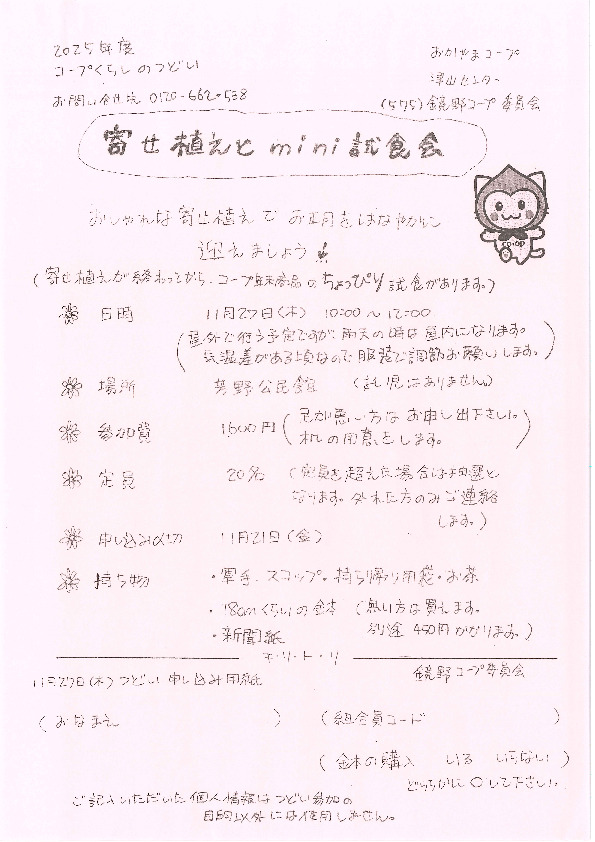 2025年度
コープくらしのつどい
お問い合せ先 0120-662-538
おかやまコープ
津山センター
(575)鏡野コープ委員会
寄せ植えとmini試食会
おしゃれな寄せ植えでお正月をはなやかに
迎えましょう!
(寄せ植えが終わってから、コープ年末商品のちょっぴり試食があります。)
CO・OP
日時 11月27日(木) 10:00～12:00
(屋外で行う予定ですが、雨天の時は屋内になります。
気温差がある頃なので服装で調節お願いします。)
場所 芳野公民館 (託児はありません)
参加費 1,600円 (足が悪い方はお申し出下さい。
机の用意をします。)
定員 20名 (定員を超えた場合は抽選と
なります。外れた方のみご連絡
します。)
申し込み〆切 11月21日(金)
持ち物 ・軍手・スコップ・持ち帰り用袋・お茶
・18cmくらいの鉢 (無い方は買えます。
・新聞紙 別途 450円かかります。)
キ・リ・ト・リ
11月27日(木)つどい申し込み用紙 鏡野コープ委員会
(おなまえ ) (組合員コード )
(鉢の購入 いる いらない)
どちらかに○して下さい
ご記入いただいた個人情報はつどい参加の
目的以外には使用しません。